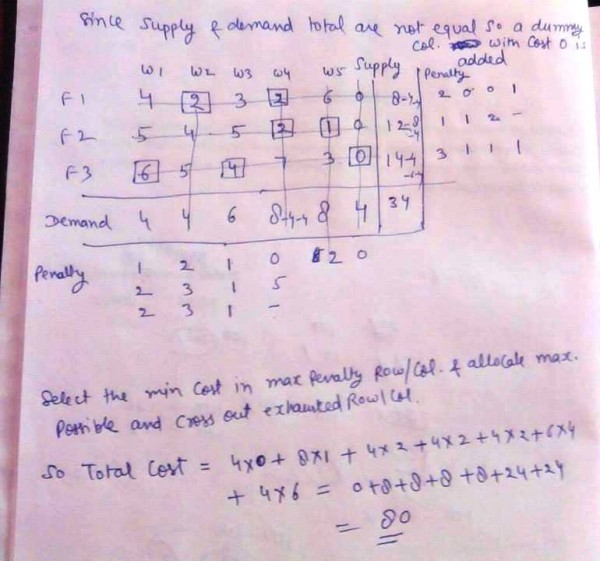 Since Supply & demand total are not equal so a dummy
col. with Cost 0 is
added
W1 W2 W3 W4 W5 Supply Penalty
F1 4 2 3 2 6 0 8-4 2 0 0 1
F2 5 4 5 2 1 0 12-8-4 1 1 2 -
F3 6 5 4 7 3 0 14-4 3 1 1 1
Demand 4 4 6 8-4-4 8 4 34
Penalty 1 2 1 0 2 0
2 3 1 5
2 3 1 -
Select the min cost in max Penalty Row/Col. & allocate max.
Possible and cross out exhausted Row/Col.
So Total Cost = 4x0 + 8x1 + 4x2 + 4x2 + 4x2 + 6x4
+ 4x6 = 0+8+8+8+8+24+24
= 80